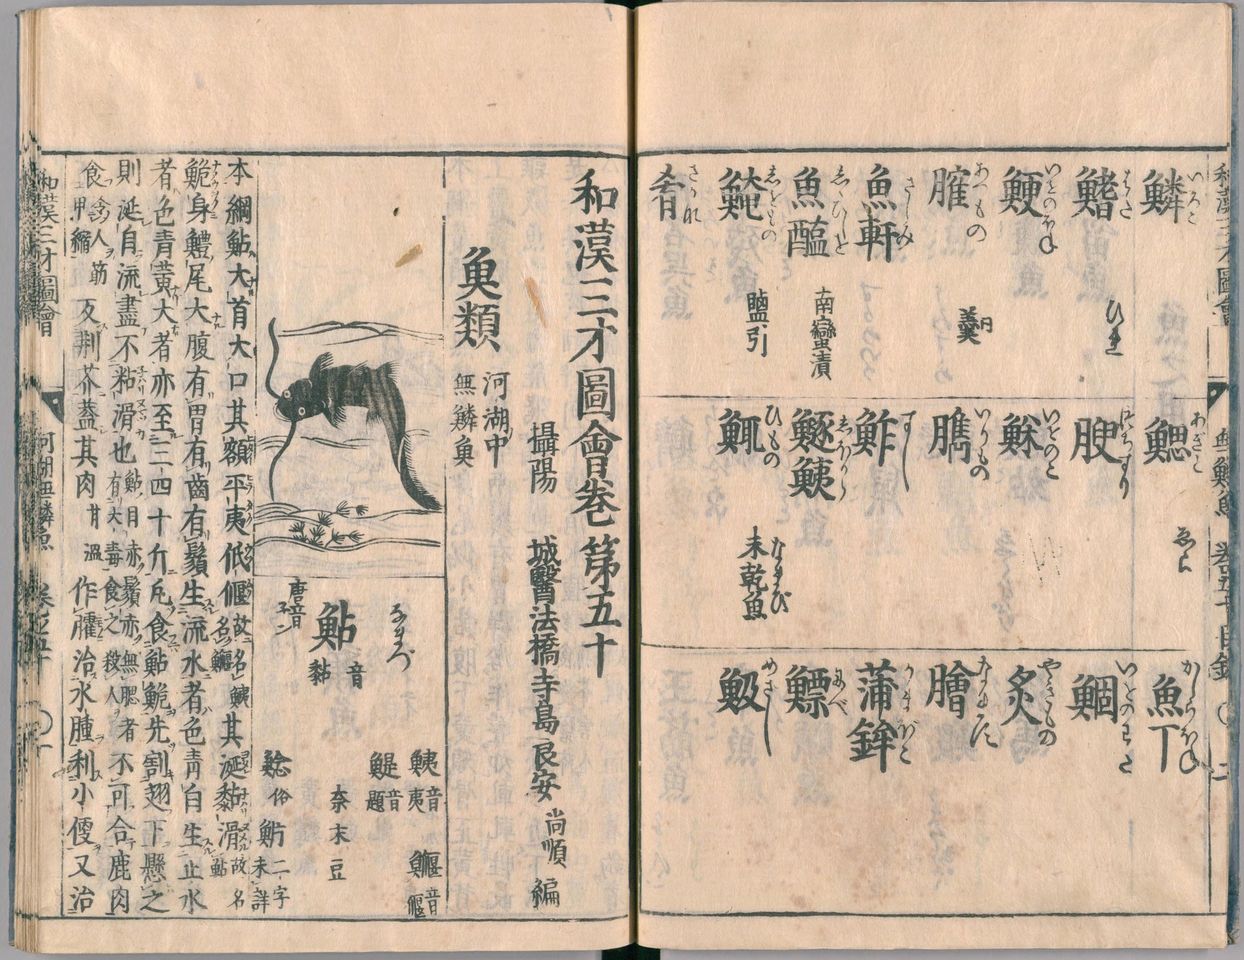 鱗 いろこ
鰭 はた ひれ
鯁 いをのほね
臛 あつもの 羹
魚軒 さしみ
魚醢 しひしを 南蠻漬
鯥 しをもの 鹽引
肴 さかな
鰓 あぎと ゑら
腴 つちすり
鮴 いをのこ
臇 いりもの
鮓 すし
鱁鮧 しほから
鮿 ひもの 未乾魚 なまび
魚丁 かしらほね
鯝 いをのわた
炙 やきもの
膾 なます
蒲鉾 かまぼこ
鰾 にべ
鮁 めざし
和漢三才圖會
和漢三才圖會巻第五十
攝陽 城醫法橋寺島良安 尚順 編
魚類 河湖中 無鱗魚
鮎 音黏 なまづ 唐音 ネン
鮧 音夷 鰋 音偃
鯷 音題
奈末豆
鯰 俗 魸 二字未詳
本綱鮎大首大口其額平夷低偃故名鮧名鰋其涎黏滑故名鮎
鮠身鱧尾大腹有胃有齒有鬚生流水者色青白生止水
者色青黄大者亦至三四十斤凡食鮎鮠先割翅下懸之
則涎自流盡不粘滑也有大毒食之殺人鮎目赤鬚赤無腮者不可合鹿肉
食令人筋甲縮及荆芥葢其肉甘温作臛治水腫利小便又治
和漢三才圖會 河湖無鱗魚 巻之五十 〇一